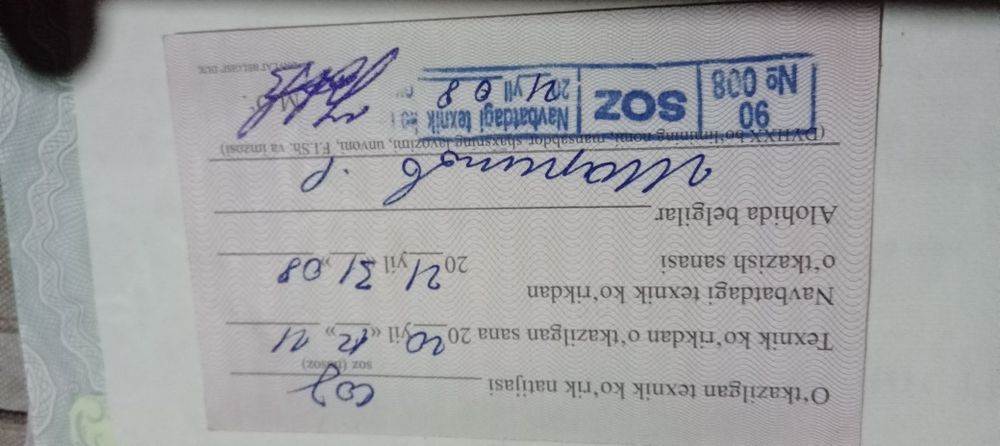 O'tkazilgan texnik ko'rik natijasi соз
soz (nosoz)
Texnik ko'rikdan o'tkazilgan sana 2020 yil «12» 11
Navbatdagi texnik ko'rikdan
o'tkazish sanasi 2021 yil «31» 08
Alohida belgilar
Шарипов Р.
(DYHXX bo'linmining nomi, mansabdor shaxsning lavozimi, unvoni, F.I.Sh. va imzosi)
90
№ 008
SOZ
Navbatdagi texnik ko
2021 yil 08
M.O'.
DAVLAT BELGISI" DUK